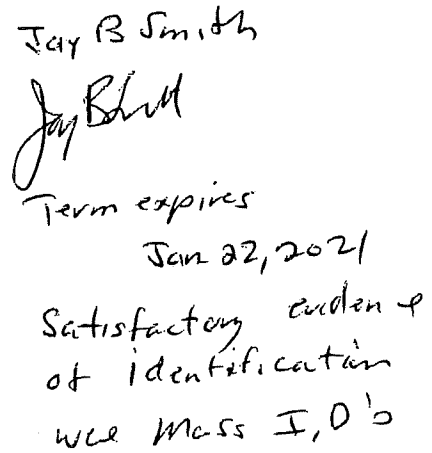 Jay B Smith
Jay B
Term expires
Jan 22, 2021
Satisfactory evidence
of identification
were Mass I,D's